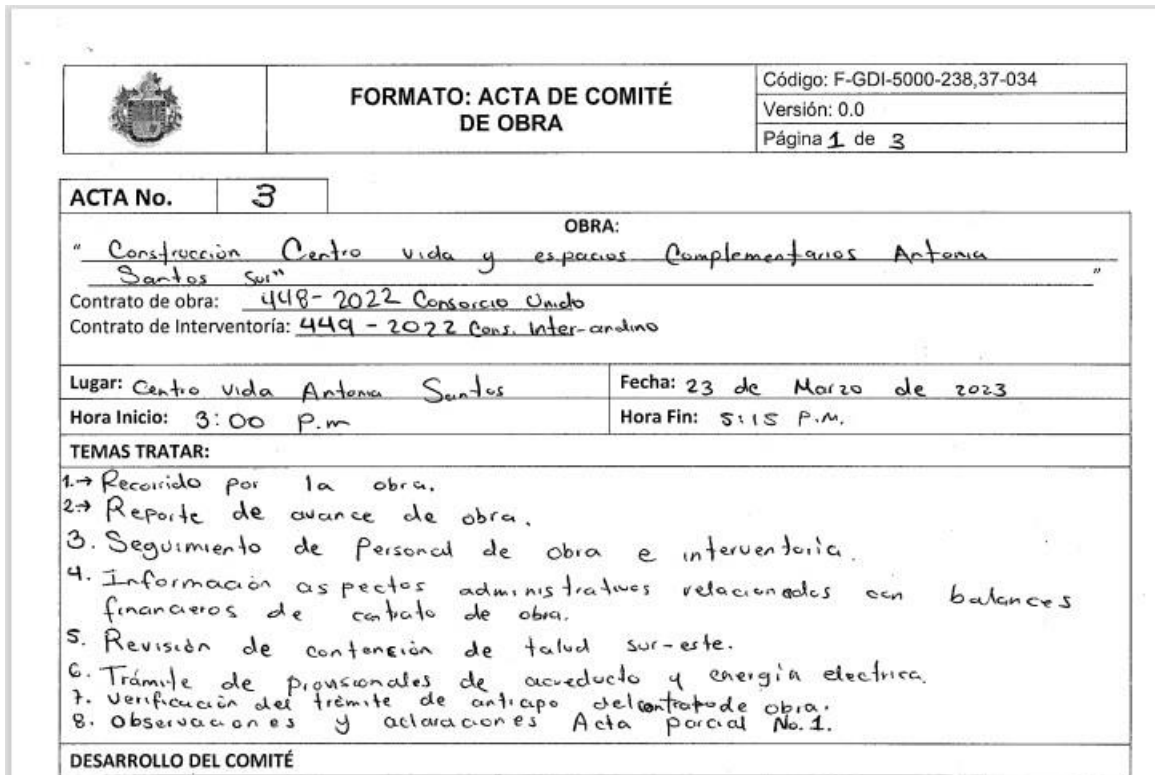 FORMATO: ACTA DE COMITÉ
DE OBRA
Código: F-GDI-5000-238,37-034
Versión: 0.0
Página 1 de 3
ACTA No. 3
OBRA:
" Construcción Centro vida y espacios Complementarios Antonia
Santos Sur" "
Contrato de obra: 448-2022 Consorcio Unido
Contrato de Interventoría: 449 - 2022 Cons. Inter-andino
Lugar: Centro Vida Antonia Santos
Fecha: 23 de Marzo de 2023
Hora Inicio: 3:00 p.m
Hora Fin: 5:15 P.M.
TEMAS TRATAR:
1.→ Recorrido por la obra.
2→ Reporte de avance de obra.
3. Seguimiento de Personal de obra e interventoría.
4. Información aspectos administrativos relacionados con balances
financieros de contrato de obra.
5. Revisión de contención de talud sur-este.
6. Trámite de provisionales de acueducto y energía electrica.
7. Verificación del trámite de anticipo del contrato de obra.
8. Observaciones y aclaraciones Acta parcial No. 1.
DESARROLLO DEL COMITÉ